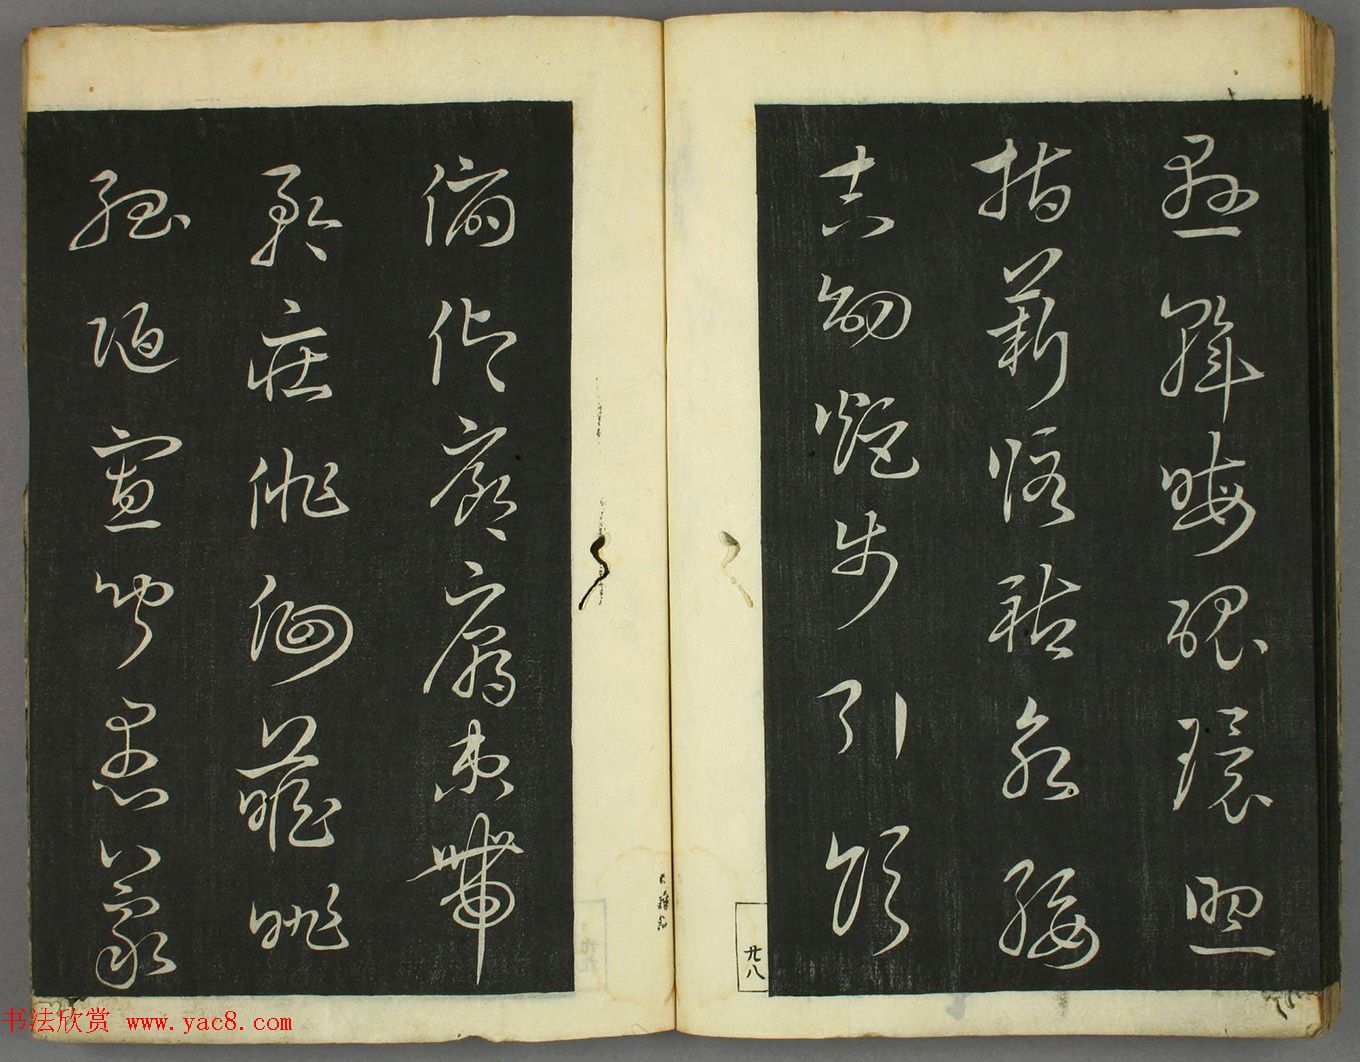 懸斡晦魄環照
指薪修祜永綏
吉劭矩步引領
俯仰廊廟束帶
矜莊徘徊瞻眺
孤陋寡聞愚蒙
廿八
书法欣赏 www.yac8.com